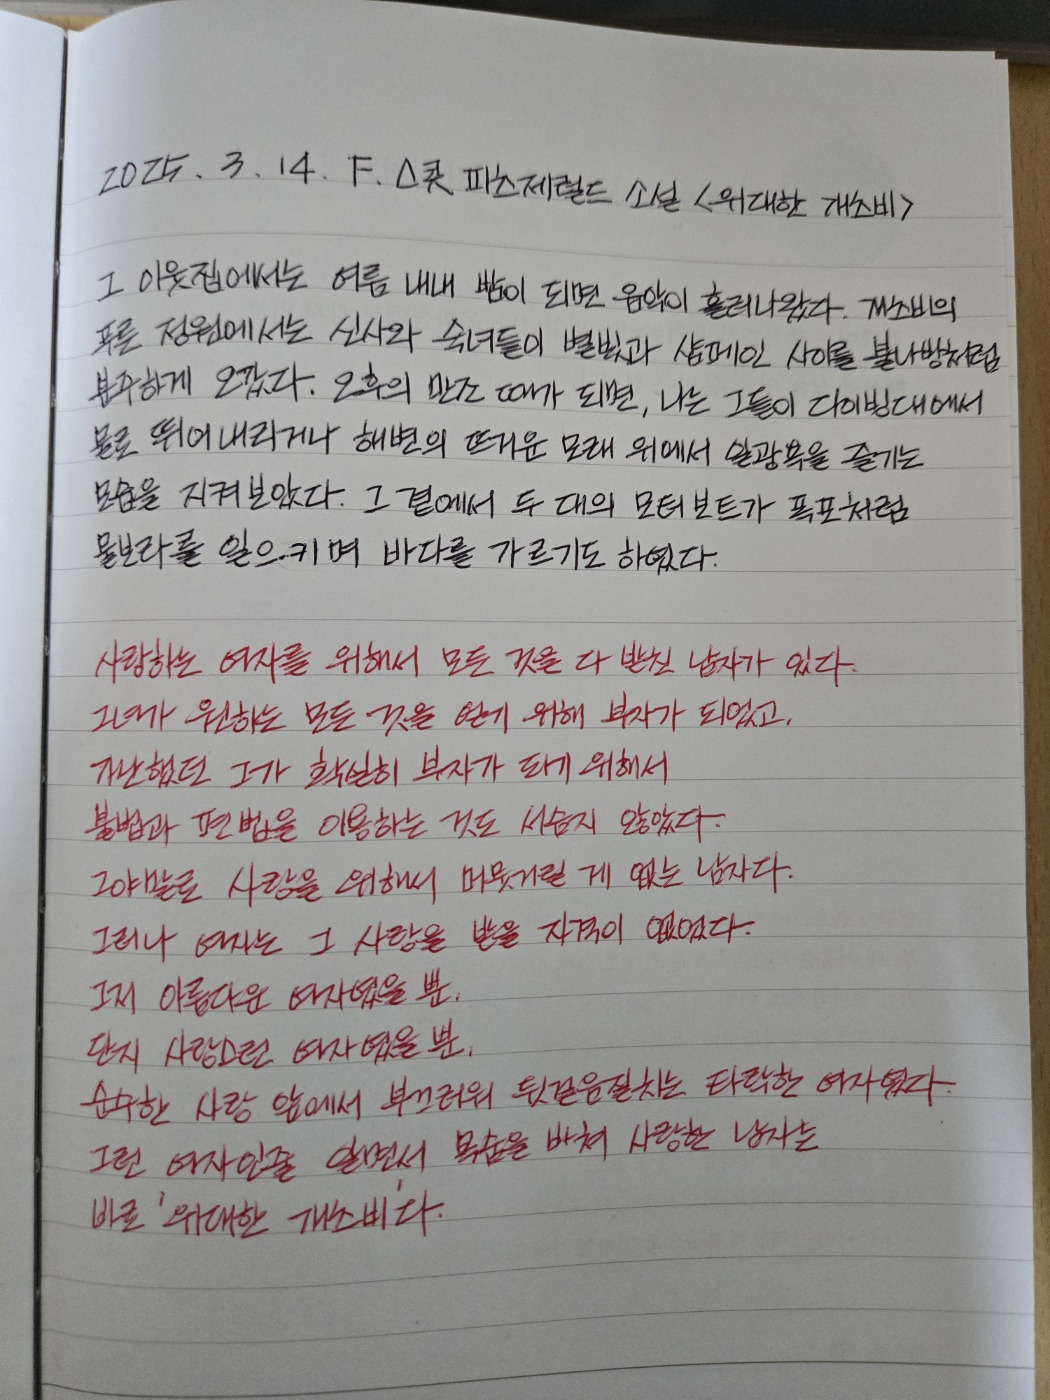 2025. 3. 14. F. 스콧 피츠제럴드 소설 <위대한 개츠비>
그 이웃집에서는 여름 내내 밤이 되면 음악이 흘러나왔다. 개츠비의
푸른 정원에서는 신사와 숙녀들이 별빛과 샴페인 사이를 불나방처럼
분주하게 오갔다. 오후의 만조 때가 되면, 나는 그들이 다이빙대에서
물로 뛰어내리거나 해변의 뜨거운 모래 위에서 일광욕을 즐기는
모습을 지켜보았다. 그 곁에서 두 대의 모터보트가 폭포처럼
물보라를 일으키며 바다를 가르기도 하였다.
사랑하는 여자를 위해서 모든 것을 다 받친 남자가 있다.
그녀가 원하는 모든 것을 얻기 위해 부자가 되었고,
가난했던 그가 확실히 부자가 되기 위해서
불법과 편법을 이용하는 것도 서슴지 않았다.
그야말로 사랑을 위해서 머뭇거릴 게 없는 남자다.
그러나 여자는 그 사랑을 받을 자격이 없었다.
그저 아름다운 여자였을 뿐,
단지 사랑스런 여자였을 뿐,
순수한 사랑 앞에서 부끄러워 뒷걸음질치는 타락한 여자였다.
그런 여자인줄 알면서 목숨을 바쳐 사랑한 남자는
바로 '위대한 개츠비'다.